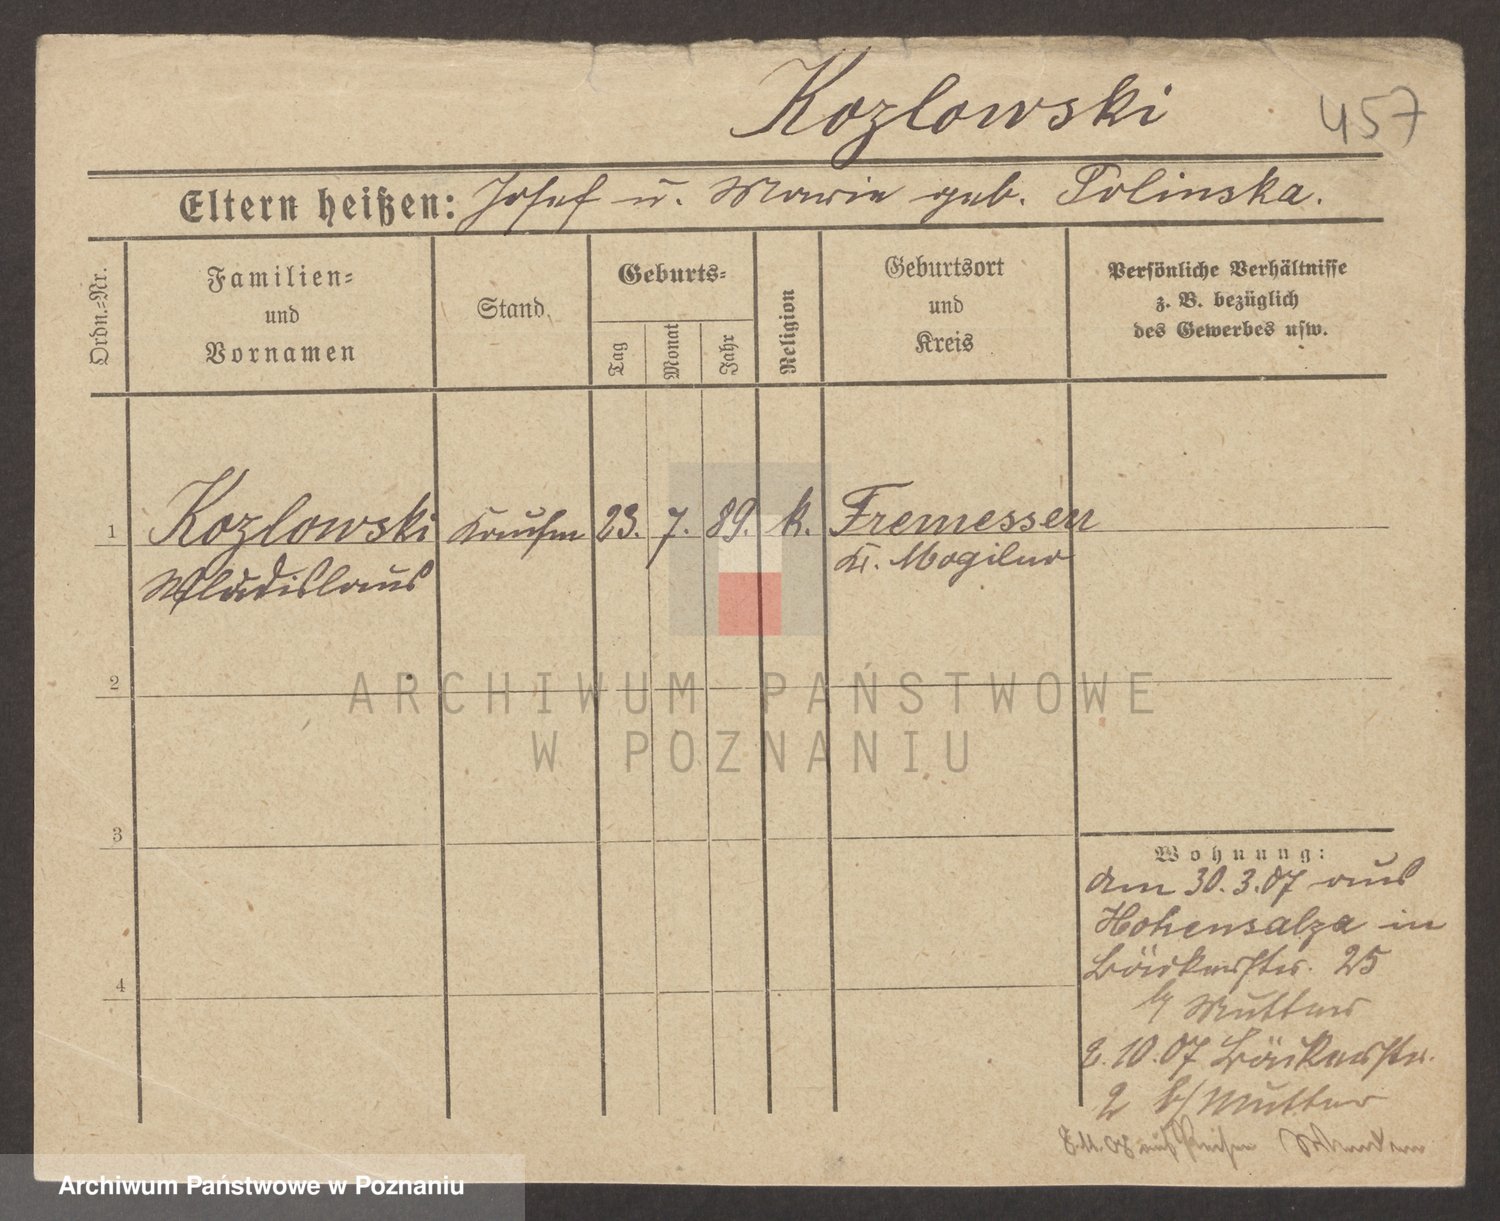 Kozlowski 457
Eltern heißen: Josef u. Marie geb. Polinska.
Ordn.-Nr.
Familien-
und
Vornamen
Stand
Geburts-
Tag
Monat
Jahr
Religion
Geburtsort
und
Kreis
Persönliche Verhältnisse
z. B. bezüglich
des Gewerbes usw.
1 Kozlowski Kaufm 23. 7. 89. k. Tremessen
Wladislaus Kr. Mogilno
2
ARCHIWUM PAŃSTWOWE
W POZNANIU
3
Wohnung:
am 30.3.07 aus
Hohensalza in
Bäckerstr. 25
b/ Mutter
2.10.07 Bäckerstr.
2 b/ Mutter
8.11.08 auf Reisen
4
Archiwum Państwowe w Poznaniu